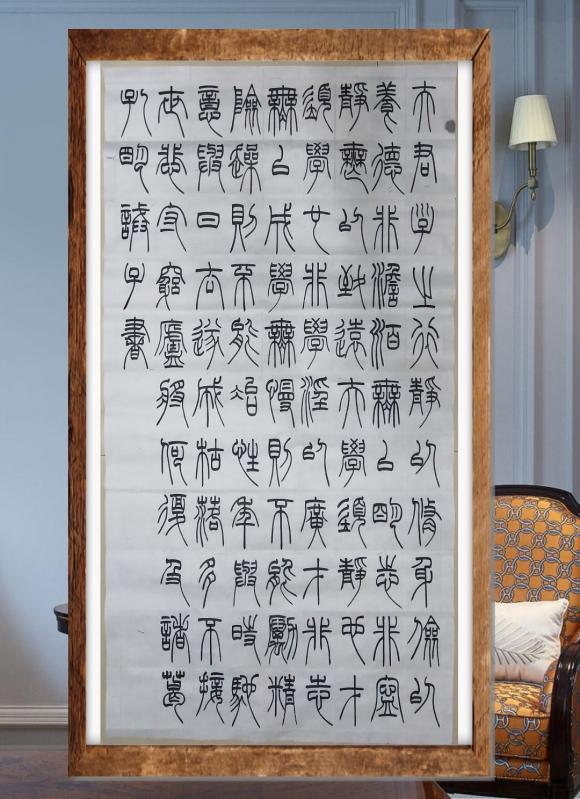 夫君子之行靜以脩身儉以
養德非澹泊無以明志非寧
靜無以致遠夫學須靜也才
須學也非學淫以廣才非志
無以成學無慢則不能勵精
險躁則不能治性年與時馳
意與日去遂成枯落多不接
世悲守窮廬將何復及諸葛
孔明誡子書